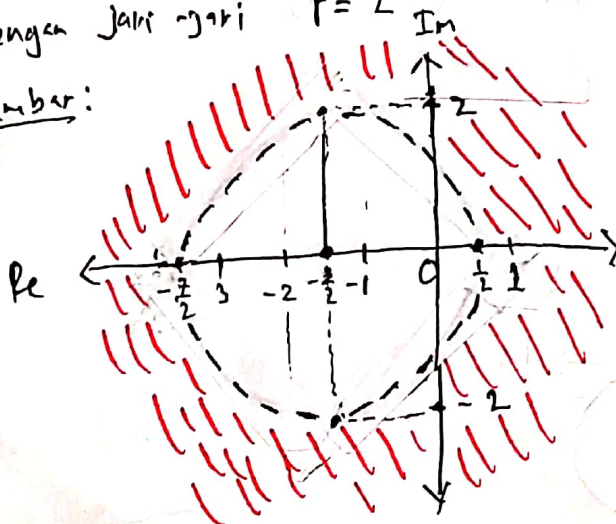 dengan Jari-jari r = 2
Gambar:
Im
2
Re
-7/2 3 -2 -3/2 -1 0 1/2 1
-2